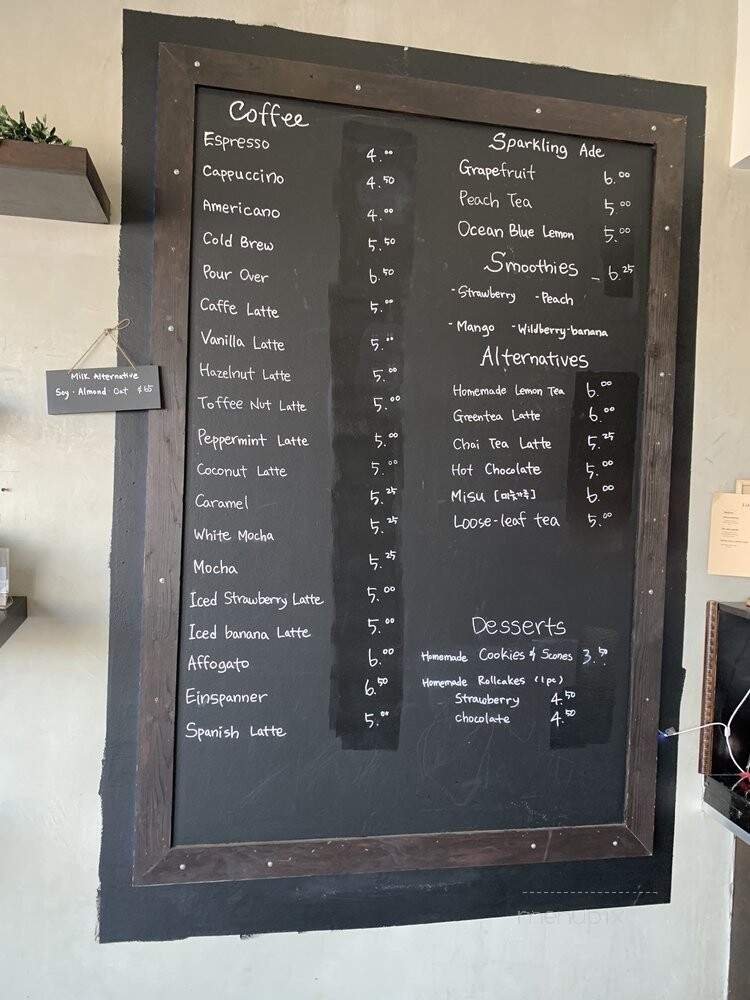 Coffee
Espresso 4.00
Cappuccino 4.50
Americano 4.00
Cold Brew 5.50
Pour Over 6.50
Caffe Latte 5.00
Vanilla Latte 5.00
Hazelnut Latte 5.00
Toffee Nut Latte 5.00
Peppermint Latte 5.00
Coconut Latte 5.00
Caramel 5.25
White Mocha 5.25
Mocha 5.25
Iced Strawberry Latte 5.00
Iced banana Latte 5.00
Affogato 6.00
Einspanner 6.50
Spanish Latte 5.00
Sparkling Ade
Grapefruit 6.00
Peach Tea 5.00
Ocean Blue Lemon 5.00
Smoothies - 6.25
-Strawberry -Peach
-Mango -Wildberry-banana
Alternatives
Homemade Lemon Tea 6.00
Greentea Latte 6.00
Chai Tea Latte 5.25
Hot Chocolate 5.00
Misu [미숫가루] 6.00
Loose-leaf tea 5.00
Desserts
Homemade Cookies & Scones 3.50
Homemade Rollcakes (1pc)
Strawberry 4.50
chocolate 4.50
Milk Alternative
Soy · Almond · Oat
menupix